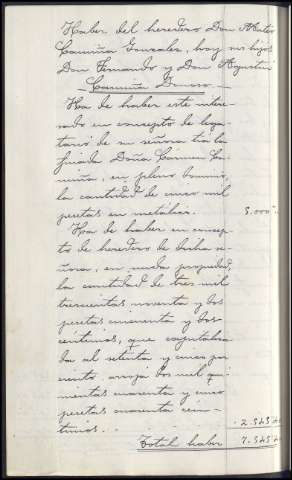 Haber del heredero Don Mateo
Camiña Gonzalez, hoy sus hijos
Don Fernando y Don Agustin
Camiña Donoso.
Ha de haber este intere-
sado en concepto de lega-
tario de su señora tia la
finada Doña Cármen Ca-
miña, en pleno dominio,
la cantidad de cinco mil
pesetas en metálico. 5.000
Ha de haber en concep-
to de heredero de dicha se-
ñora, en nuda propiedad,
la cantidad de tres mil
trescientas noventa y dos
pesetas cincuenta y dos
céntimos, que capitaliza-
da al setenta y cinco por
ciento, arroja dos mil qui-
nientas cuarenta y cinco
pesetas cuarenta cén-
timos. 2.545
Total haber 7.545